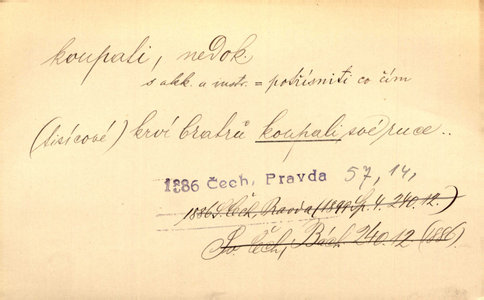 koupati, nedok.
s akk. a instr. = potřísniti co čím
(tisícové) krví bratrů koupali své ruce..
1886 Čech, Pravda 57, 14,
1886 S. Čech, Pravda (1899 Sp. 4. 240. 12.)
Sv. Čech, Bách. 240. 12 (1886).